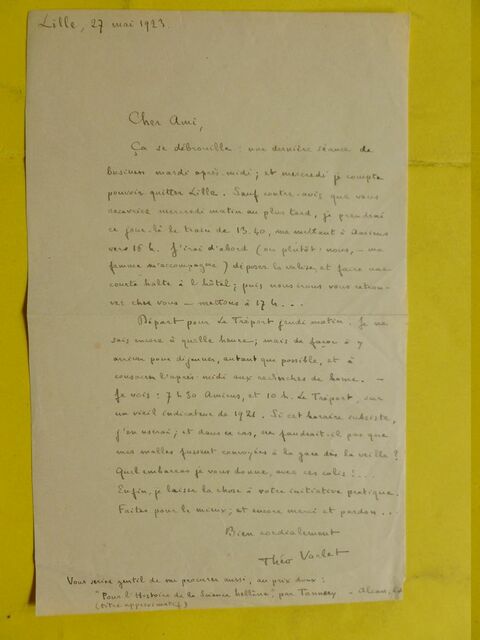 Lille, 27 mai 1923.
Cher Ami,
Ça se débrouille : une dernière séance de
business mardi après-midi ; et mercredi je compte
pouvoir quitter Lille. Sauf contre-avis que vous
recevriez mercredi matin au plus tard, je prendrai
ce jour-là le train de 13.40, me mettant à Amiens
vers 16 h. J'irai d'abord (ou plutôt : nous, — ma
femme m'accompagne) déposer la valise, et faire une
courte halte à l'hôtel ; puis nous irons vous retrou-
ver chez vous — mettons à 17 h...
Départ pour Le Tréport jeudi matin. Je ne
sais encore à quelle heure ; mais de façon à y
arriver pour déjeuner, autant que possible, et à
consacrer l'après-midi aux recherches de home. —
Je vois : 7 h 30 Amiens, et 10 h. Le Tréport, sur
un vieil indicateur de 1921. Si cet horaire subsiste,
j'en userai ; et dans ce cas, ne faudrait-il pas que
mes malles fussent convoyées à la gare dès la veille ?
Quel embarras je vous donne, avec ces colis !...
Enfin, je laisse la chose à votre initiative pratique.
Faites pour le mieux ; et encore merci et pardon...
Bien cordialement
Théo Varlet
Vous seriez gentil de me procurer aussi, au prix doux :
"Pour l'Histoire de la Science hellène", par Tannery — Alcan,
(titre approximatif)